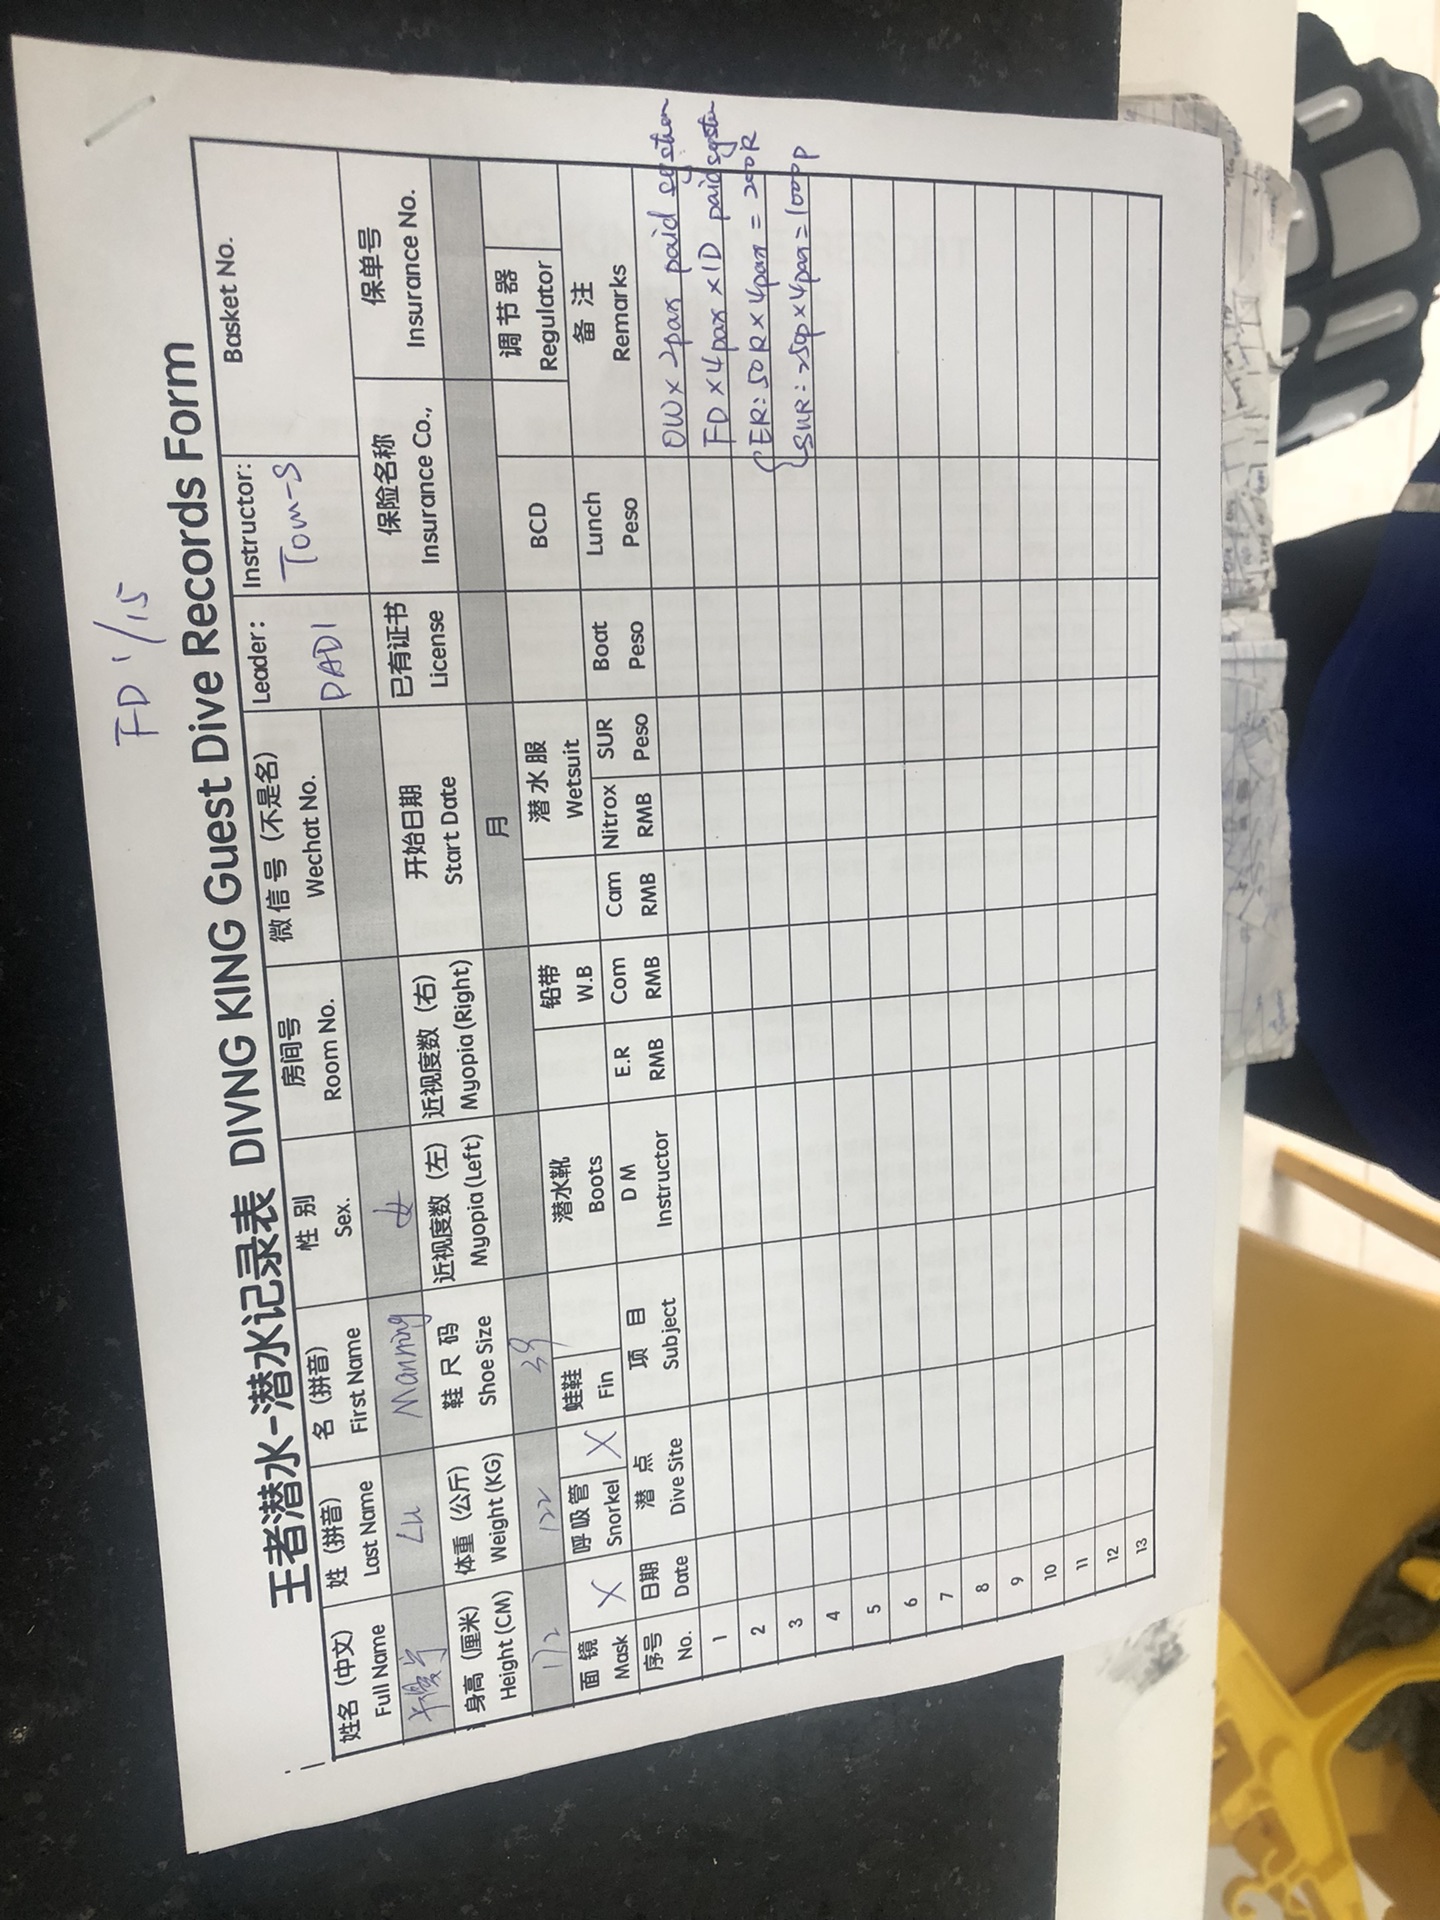 FD 1/15
王者潜水-潜水记录表 DIVNG KING Guest Dive Records Form
姓名（中文） 姓（拼音） 名（拼音） 性 别 房间号 微信号（不是名） Leader: Instructor: Basket No.
Full Name Last Name First Name Sex. Room No. Wechat No. PADI Tom-S
Lu Manning 女
身高（厘米） 体重（公斤） 鞋 尺 码 近视度数（左） 近视度数（右） 开始日期 已有证书 保险名称 保单号
Height(CM) Weight(KG) Shoe Size Myopia(Left) Myopia(Right) Start Date License Insurance Co., Insurance No.
172 122 39 月
面 镜 X 呼吸管 X 蛙鞋 潜水靴 铅带 潜 水 服 BCD 调 节 器
Mask Snorkel Fin Boots W.B Wetsuit Regulator
序号 日期 潜 点 项 目 D M E.R Com Cam Nitrox SUR Boat Lunch 备 注
No. Date Dive Site Subject Instructor RMB RMB RMB RMB Peso Peso Peso Remarks
1 OW x 2pax paid system
2 FD x 4pax x 1D paid system
3 ER: 50R x 4pax = 200R
4 SUR: 250p x 4pax = 1000p
5
6
7
8
9
10
11
12
13